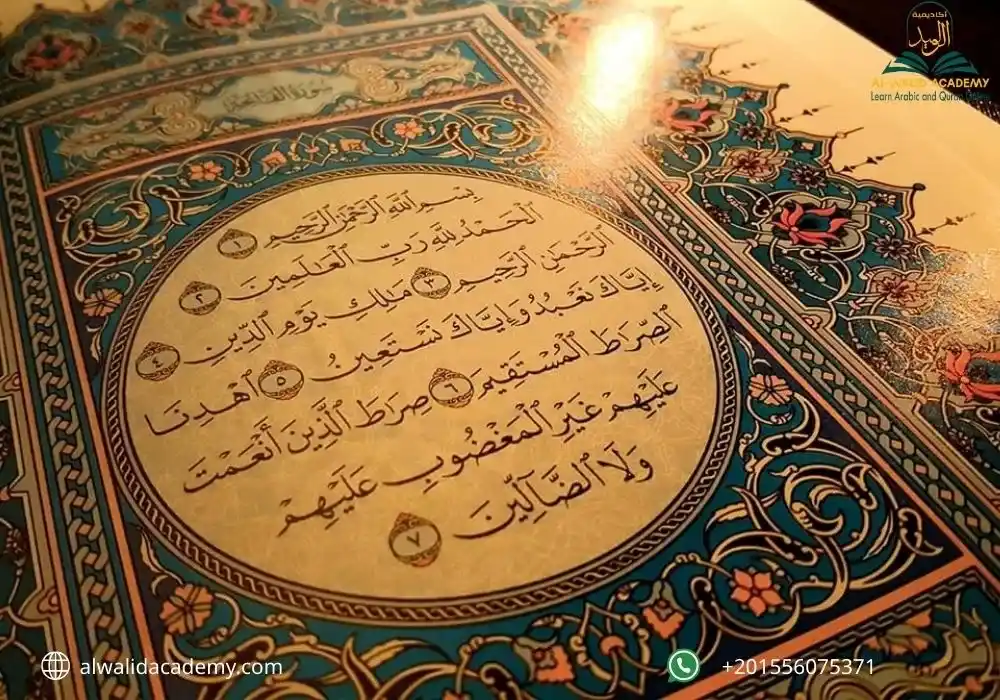 أكاديمية
الوليد
ACADEMY
Learn Arabic and Quran
سورة
بِسْمِ ٱللَّهِ ٱلرَّحْمَٰنِ ٱلرَّحِيمِ ١
ٱلْحَمْدُ لِلَّهِ رَبِّ ٱلْعَٰلَمِينَ ٢
ٱلرَّحْمَٰنِ ٱلرَّحِيمِ ٣ مَٰلِكِ يَوْمِ ٱلدِّينِ ٤
إِيَّاكَ نَعْبُدُ وَإِيَّاكَ نَسْتَعِينُ ٥ ٱهْدِنَا
ٱلصِّرَٰطَ ٱلْمُسْتَقِيمَ ٦ صِرَٰطَ ٱلَّذِينَ أَنْعَمْتَ
عَلَيْهِمْ غَيْرِ ٱلْمَغْضُوبِ عَلَيْهِمْ
وَلَا ٱلضَّآلِّينَ ٧
alwalidacademy.com
+201556075371